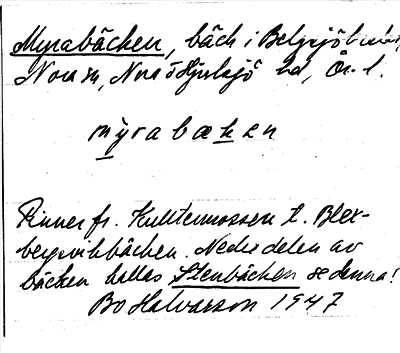 Myrabäcken, bäck i
Nora sn, Nora o Hjulsjö hd, Ör. l.
myrabäcken
Rinner fr. Kulltermossen t. Blex-
bergsviksbäcken. Nedre delen av
bäcken kallas Stenbäcken se denna!
Bo Halvarson 1947